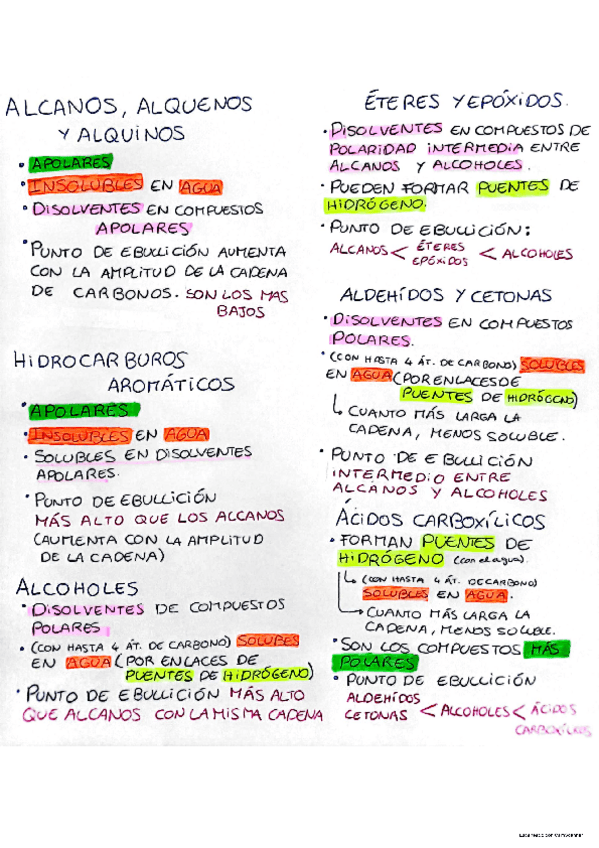 ALCANOS, ALQUENOS
Y ALQUINOS
• APOLARES
• INSOLUBLES EN AGUA
• DISOLVENTES EN COMPUESTOS
APOLARES
• PUNTO DE EBULLICIÓN AUMENTA
CON LA AMPLITUD DE LA CADENA
DE CARBONOS. SON LOS MAS
BAJOS
HIDROCARBUROS
AROMÁTICOS
• APOLARES
• INSOLUBLES EN AGUA
• SOLUBLES EN DISOLVENTES
APOLARES.
• PUNTO DE EBULLICIÓN
MÁS ALTO QUE LOS ALCANOS
(AUMENTA CON LA AMPLITUD
DE LA CADENA)
ALCOHOLES
• DISOLVENTES DE COMPUESTOS
POLARES
• (CON HASTA 4 ÁT. DE CARBONO) SOLUBES
EN AGUA (POR ENLACES DE
PUENTES DE HIDRÓGENO)
• PUNTO DE EBULLICIÓN MÁS ALTO
QUE ALCANOS CON LA MISMA CADENA
ÉTERES Y EPÓXIDOS.
• DISOLVENTES EN COMPUESTOS DE
POLARIDAD INTERMEDIA ENTRE
ALCANOS Y ALCOHOLES.
• PUEDEN FORMAR PUENTES DE
HIDRÓGENO.
• PUNTO DE EBULLICIÓN:
ALCANOS < ÉTERES EPÓXIDOS < ALCOHOLES
ALDEHÍDOS Y CETONAS
• DISOLVENTES EN COMPUESTOS
POLARES.
• (CON HASTA 4 ÁT. DE CARBONO) SOLUBLES
EN AGUA (POR ENLACES DE
PUENTES DE HIDRÓGENO)
↳ CUANTO MÁS LARGA LA
CADENA, MENOS SOLUBLE.
• PUNTO DE EBULLICIÓN
INTERMEDIO ENTRE
ALCANOS Y ALCOHOLES
ÁCIDOS CARBOXÍLICOS
• FORMAN PUENTES DE
HIDRÓGENO (con el agua).
↳ (CON HASTA 4 ÁT. DE CARBONO)
SOLUBLES EN AGUA.
↳ CUANTO MÁS LARGA LA
CADENA, MENOS SOLUBLE.
• SON LOS COMPUESTOS MÁS
POLARES
• PUNTO DE EBULLICIÓN
ALDEHÍDOS
CETONAS < ALCOHOLES < ÁCIDOS
CARBOXÍLICOS